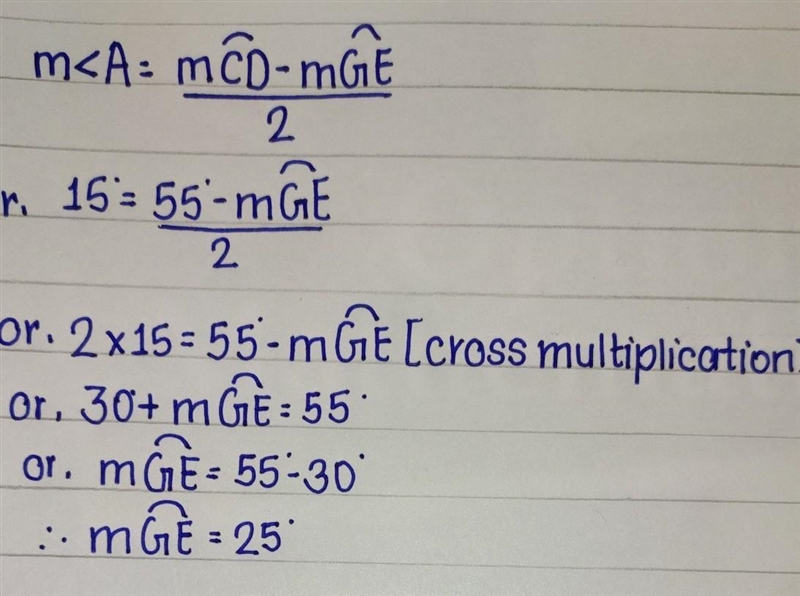 m<A = (mC͡D - mG͡E)/2
r. 15° = (55° - mG͡E)/2
or. 2×15 = 55° - mG͡E [cross multiplication]
or. 30° + mG͡E = 55°
or. mG͡E = 55° - 30°
∴ mG͡E = 25°